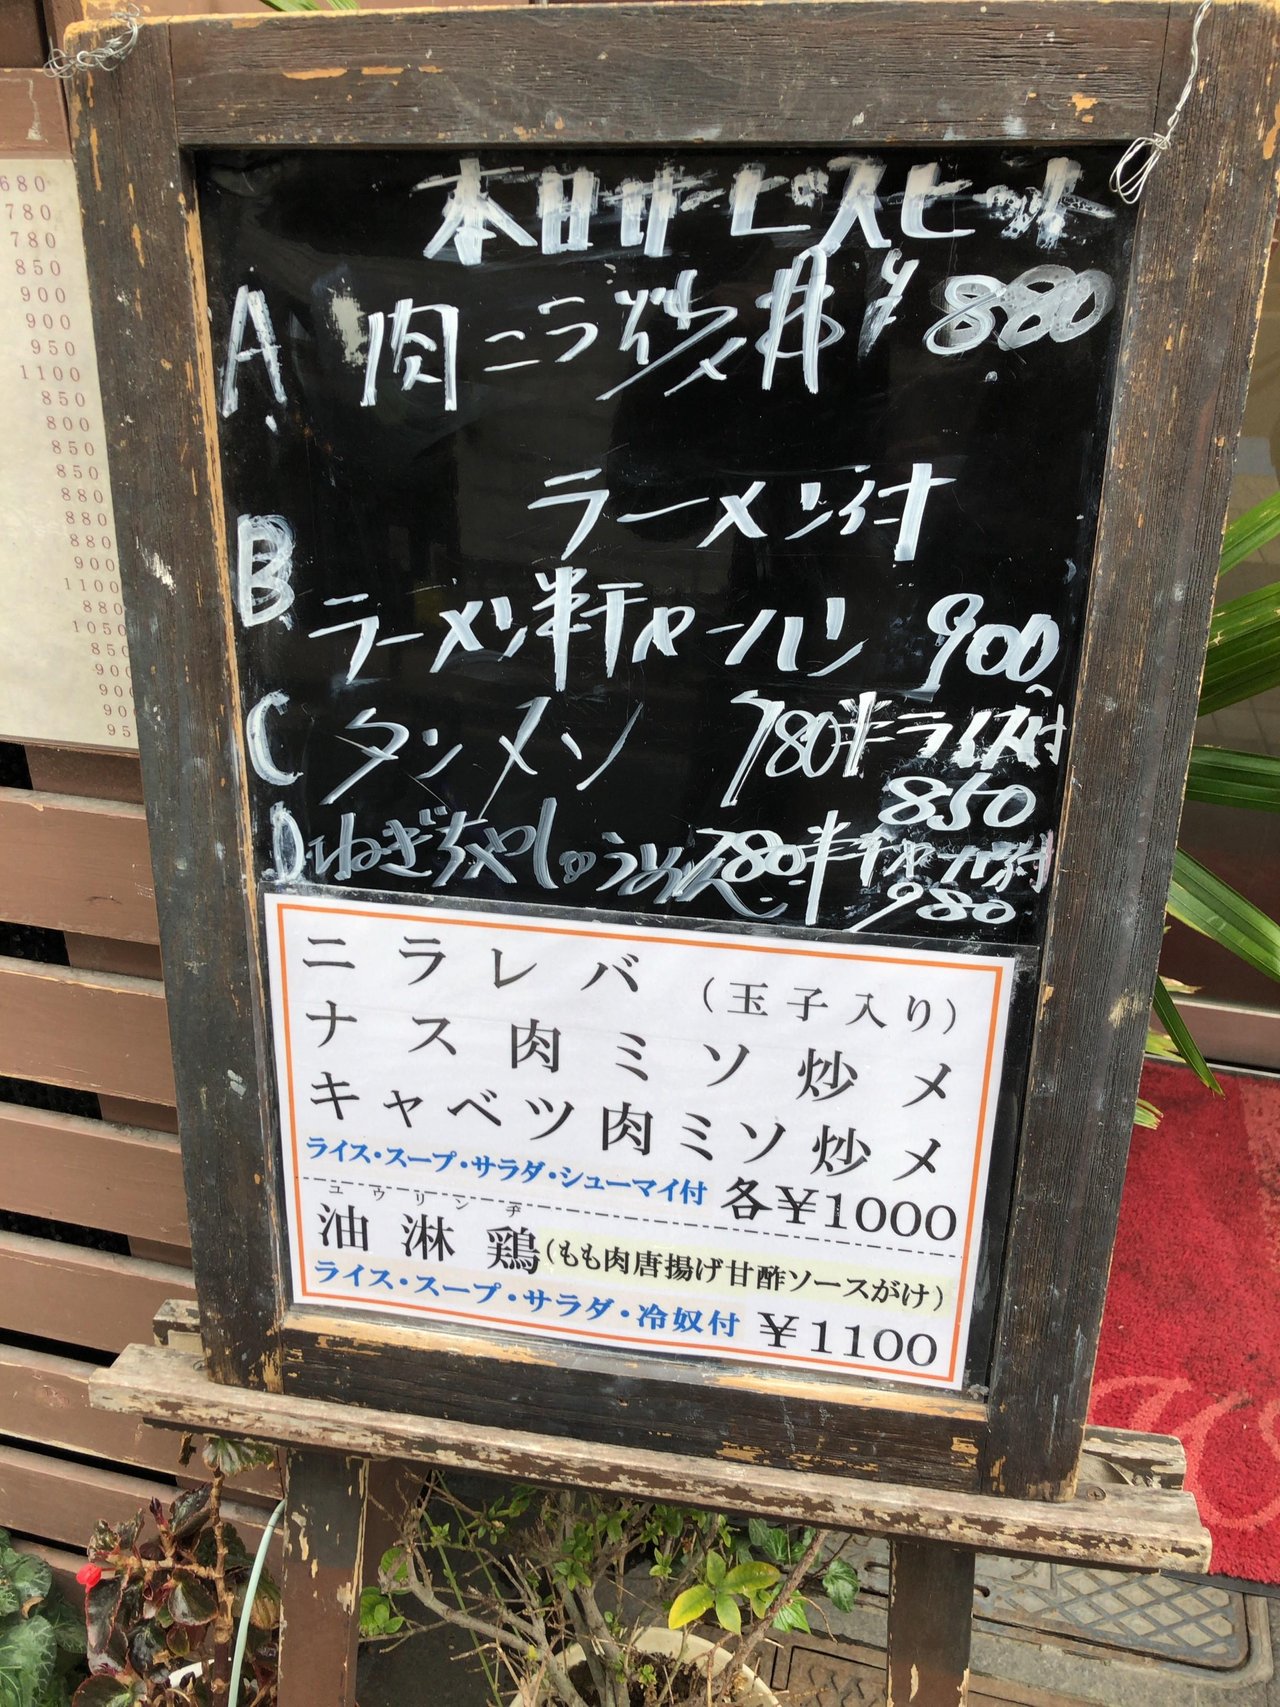 本日サービスセット
A 肉ニラ炒メ丼 ¥880
ラーメン付
B ラーメン半チャーハン 900
C タンメン 780 半ライス付
850
D ねぎちゃしゅうめん 780 半チャーハン付
980
ニラレバ (玉子入り)
ナス肉ミソ炒メ
キャベツ肉ミソ炒メ
ライス・スープ・サラダ・シューマイ付 各¥1000
ユウリンチ
油淋鶏(もも肉唐揚げ甘酢ソースがけ)
ライス・スープ・サラダ・冷奴付 ¥1100
680
780
780
850
900
900
950
1100
850
800
850
850
880
880
880
900
1100
880
1050
850
900
900